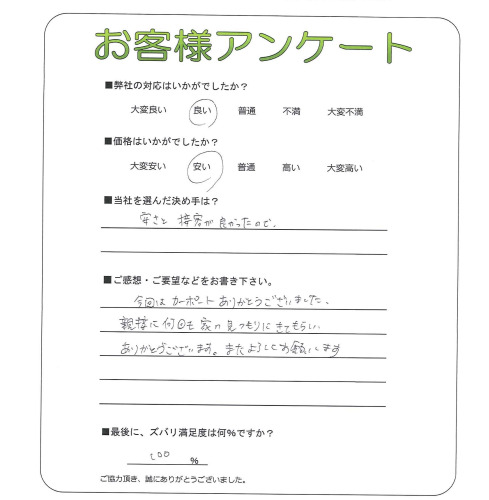 お客様アンケート
■弊社の対応はいかがでしたか?
大変良い 良い 普通 不満 大変不満
■価格はいかがでしたか?
大変安い 安い 普通 高い 大変高い
■当社を選んだ決め手は?
安さと 接客が良かったので.
■ご感想・ご要望などをお書き下さい。
今回は カーポート ありがとうございました.
親切に 何回も 家の見つもりに きてもらい
ありがとうございます。またよろしくお願いします
■最後に、ズバリ満足度は何%ですか?
100 %
ご協力頂き、誠にありがとうございました。